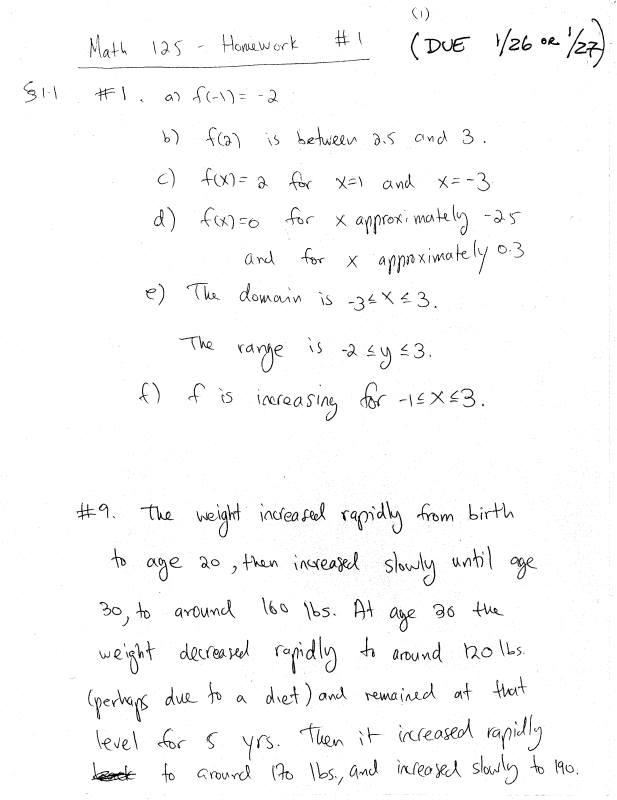 (1)
Math 125 - Homework #1 (DUE 1/26 OR 1/27)
§1.1 #1. a) f(-1) = -2
b) f(2) is between 2.5 and 3.
c) f(x) = 2 for x=1 and x=-3
d) f(x)=0 for x approximately -2.5
and for x approximately 0.3
e) The domain is -3≤x≤3.
The range is -2≤y≤3.
f) f is increasing for -1≤x≤3.
#9. The weight increased rapidly from birth
to age 20, then increased slowly until age
30, to around 160 lbs. At age 30 the
weight decreased rapidly to around 120 lbs.
(perhaps due to a diet) and remained at that
level for 5 yrs. Then it increased rapidly
to around 170 lbs., and increased slowly to 190.